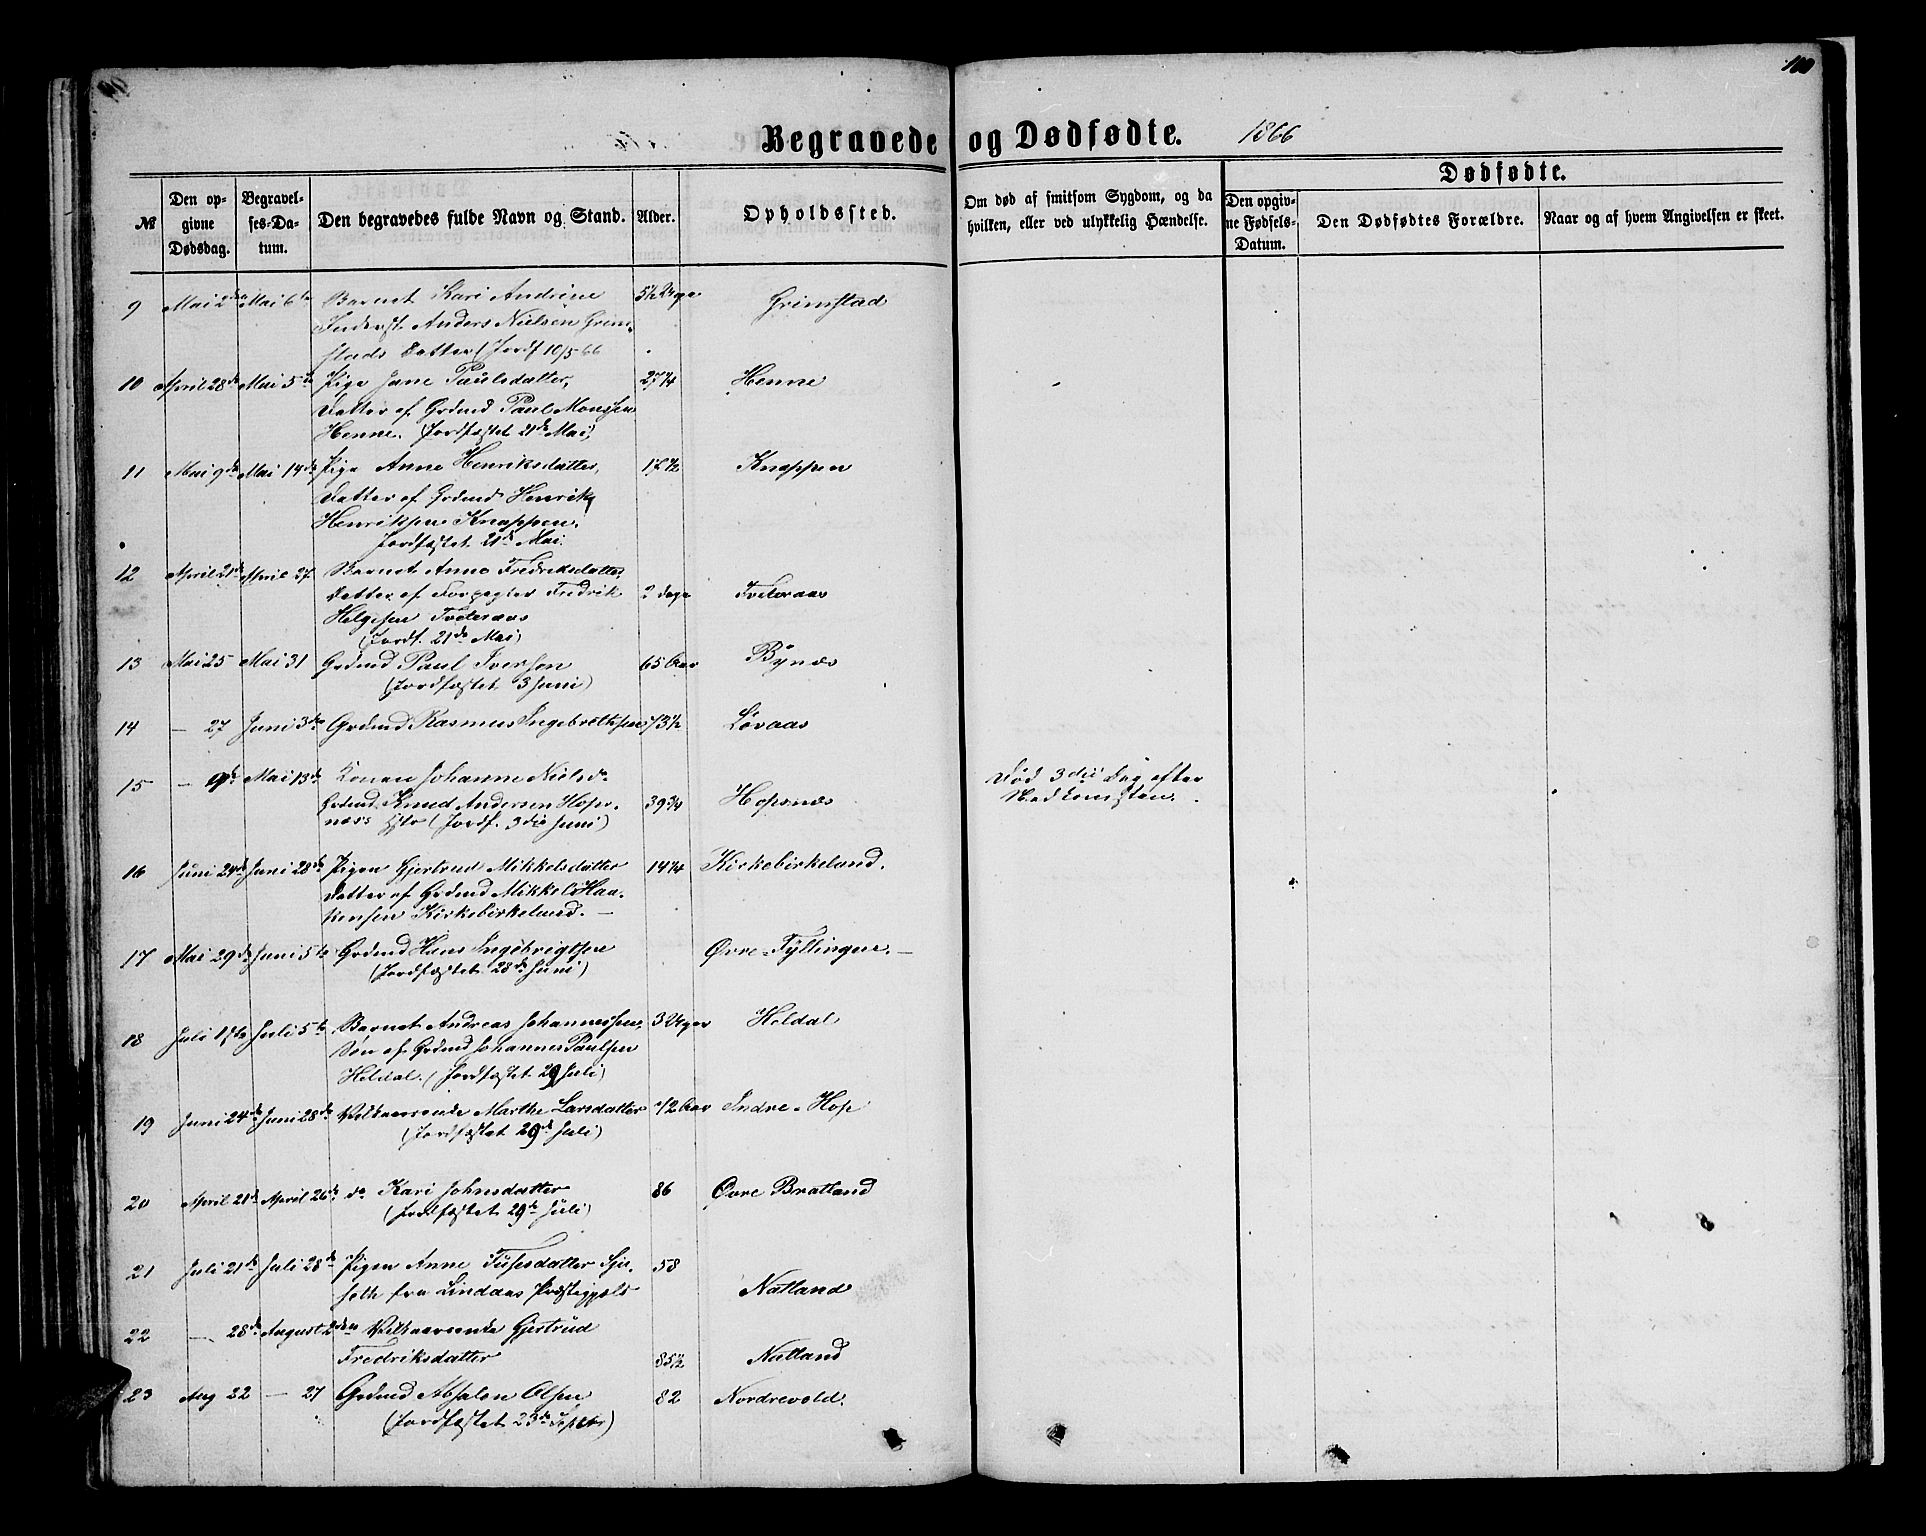 100
Begravede og Dødfødte. 1866
№
Den op-
givne
Dødsdag.
Begravel-
ses-Da-
tum.
Den begravedes fulde Navn og Stand.
Alder.
Opholdssted.
Om død af smitsom Sygdom, og da
hvilken, eller ved ulykkelig Hændelse.
Dødfødte.
Den opgiv-
ne Fødsels-
Datum.
Den Dødfødtes Forældre.
Naar og af hvem Angivelsen er skeet.
9 Mai 2den Mai 6te Barnet Kari Andrine 5½ Uge Grimstad
Inderst. Anders Nielsen Grim-
stads Datter (Jordf 10/5 66
10 April 28de Mai 5te Pige Jane Paulsdatter, 27¼ Henne
Datter af Grdmd Paul Monssen
Henne. (Jordfæstet 21de Mai)
11 Mai 9de Mai 14de Pige Anne Henriksdatter, 17½ Knappen
Datter af Grdmd Henrik
Henriksen Knappen.
Jordfæstet 21de Mai.
12 April 21de April 27 Barnet Anne Fredriksdatter,
Datter af Forpagter Fredrik 2 Dage Tveteraas
Helgesen Tveteraas
(Jordf. 21de Mai)
13 Mai 25 Mai 31 Grdmd Paul Iverson 65 Aar Bynæs
(Jordfæstet 3 Juni)
14 — 27 Juni 3die Grdmd Rasmus Ingebrethsen 73½ Løvaas
15 — 9de Mai 13de Konen Johanne Nielsdr Død 3die Dag efter
Grdmd. Knud Andersen Hops- 39¾ Hopsnæs Nedkomsten.
næs's Hstr (Jordf. 3die Juni)
16 Juni 24de Juni 28de Pigen Gjertrud Mikkelsdatter 14¼ Kirkebirkeland.
Datter af Grdmd Mikkel Haa-
kensen Kirkebirkeland. —
17 Mai 29de Juni 5te Grdmd Hans Ingebrigtsen Øvre-Fyllingen. —
(Jordfæstet 28de Juni)
18 Juli 1ste Juli 5te Barnet Andreas Johannessen, 3 Uger Heldal
Søn af Grdmd Johannes Paulsen
Heldal. (Jordfæstet 29 Juli)
19 Juni 24de Juni 28de Vilkaarsenke Marthe Larsdatter 72 Aar Indre-Hop
(Jordfæstet 29de Juli)
20 April 21de April 26de do Kari Johnsdatter 86 Øvre Bratland
(Jordfæstet 29de Juli)
21 Juli 21de Juli 28de Pigen Anne 58
fra Lindaas Præstegjæld Natland
22 — 28de August 2den Vilkaarsenke Gjertrud
Fredriksdatter 85½ Natland
23 Aug 22 — 27 Grdmd Absalon Olsen 82 Nordrevold.
(Jordfæstet 23de Septbr)